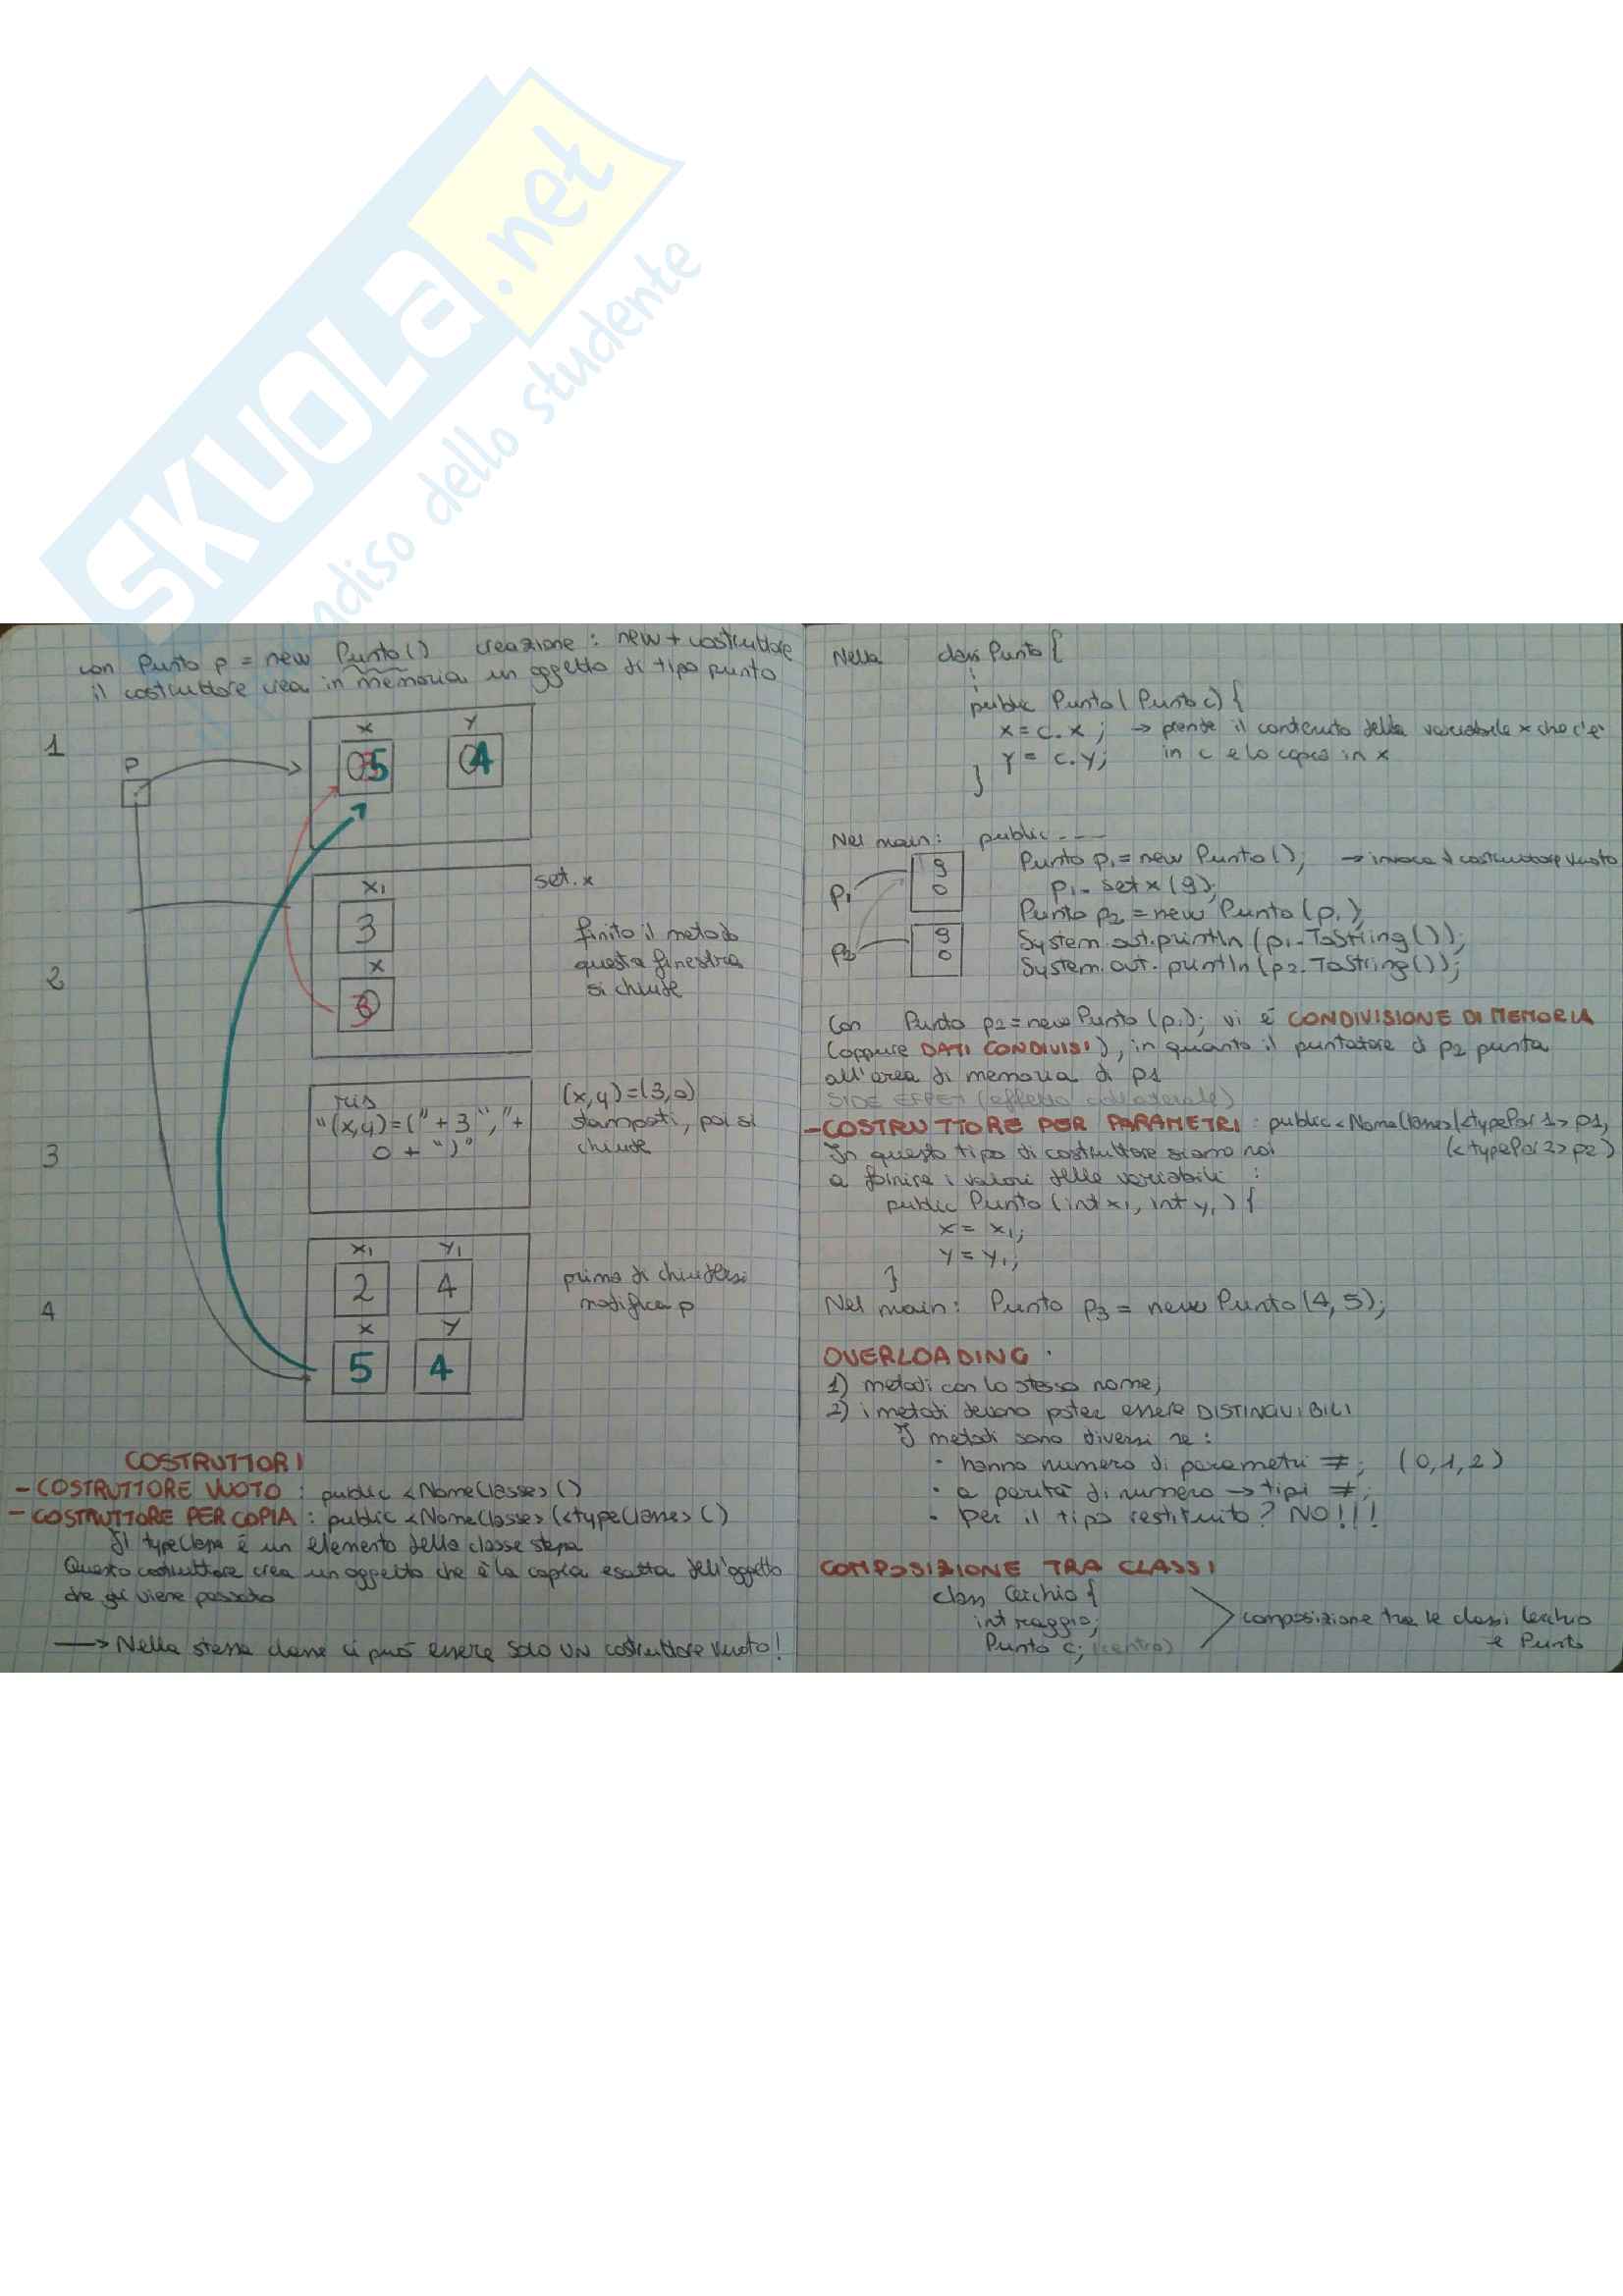 SKUOLA.net
dello studente
con Punto p = new Punto() creazione: new + costruttore
il costruttore crea in memoria un oggetto di tipo punto
1
x y
P
5 4
x1
set.x
3
finito il metodo
x
questa finestra
2
si chiude
3
ris
(x,y)=(3,0)
"(x,y)=(" + 3 "," +
stampati, poi si
0 + ")"
chiude
3
x1 y1
2 4
prima di chiudersi
modifica p
4
x y
5 4
COSTRUTTORI
- COSTRUTTORE VUOTO : public <NomeClasse> ()
- COSTRUTTORE PER COPIA : public <NomeClasse> (<typeClasse> C)
Il typeClasse è un elemento della classe stessa
Questo costruttore crea un oggetto che è la copia esatta dell'oggetto
che gli viene passato
→ Nella stessa classe ci può essere SOLO UN costruttore vuoto!
Nella class Punto {
public Punto (Punto c) {
x = c.x ; → prende il contenuto della variabile x che c'è
y = c.y; in c e lo copia in x
}
Nel main: public ---
Punto p1 = new Punto(); → invoca il costruttore vuoto
9
p1 0 p1. setx (9);
Punto p2 = new Punto (p1);
p2 9 System.out.println (p1.ToString());
0 System.out.println (p2.ToString());
Con Punto p2 = new Punto (p1); vi è CONDIVISIONE DI MEMORIA
(oppure DATI CONDIVISI), in quanto il puntatore di p2 punta
all'area di memoria di p1
SIDE EFFET (effetto collaterale)
- COSTRUTTORE PER PARAMETRI : public <NomeClasse> (<typePar1> p1,
In questo tipo di costruttore siamo noi (<typePar2> p2)
a fornire i valori delle variabili :
public Punto (int x1, int y1) {
x = x1;
y = y1;
}
Nel main: Punto p3 = new Punto (4, 5);
OVERLOADING :
1) metodi con lo stesso nome;
2) i metodi devono poter essere DISTINGUIBILI
I metodi sono diversi se :
· hanno numero di parametri ≠; (0,1,2)
· a parità di numero → tipi ≠;
· per il tipo restituito? NO!!!
COMPOSIZIONE TRA CLASSI
class Cerchio {
int raggio;
composizione tra le classi Cerchio
Punto c; (centro)
e Punto